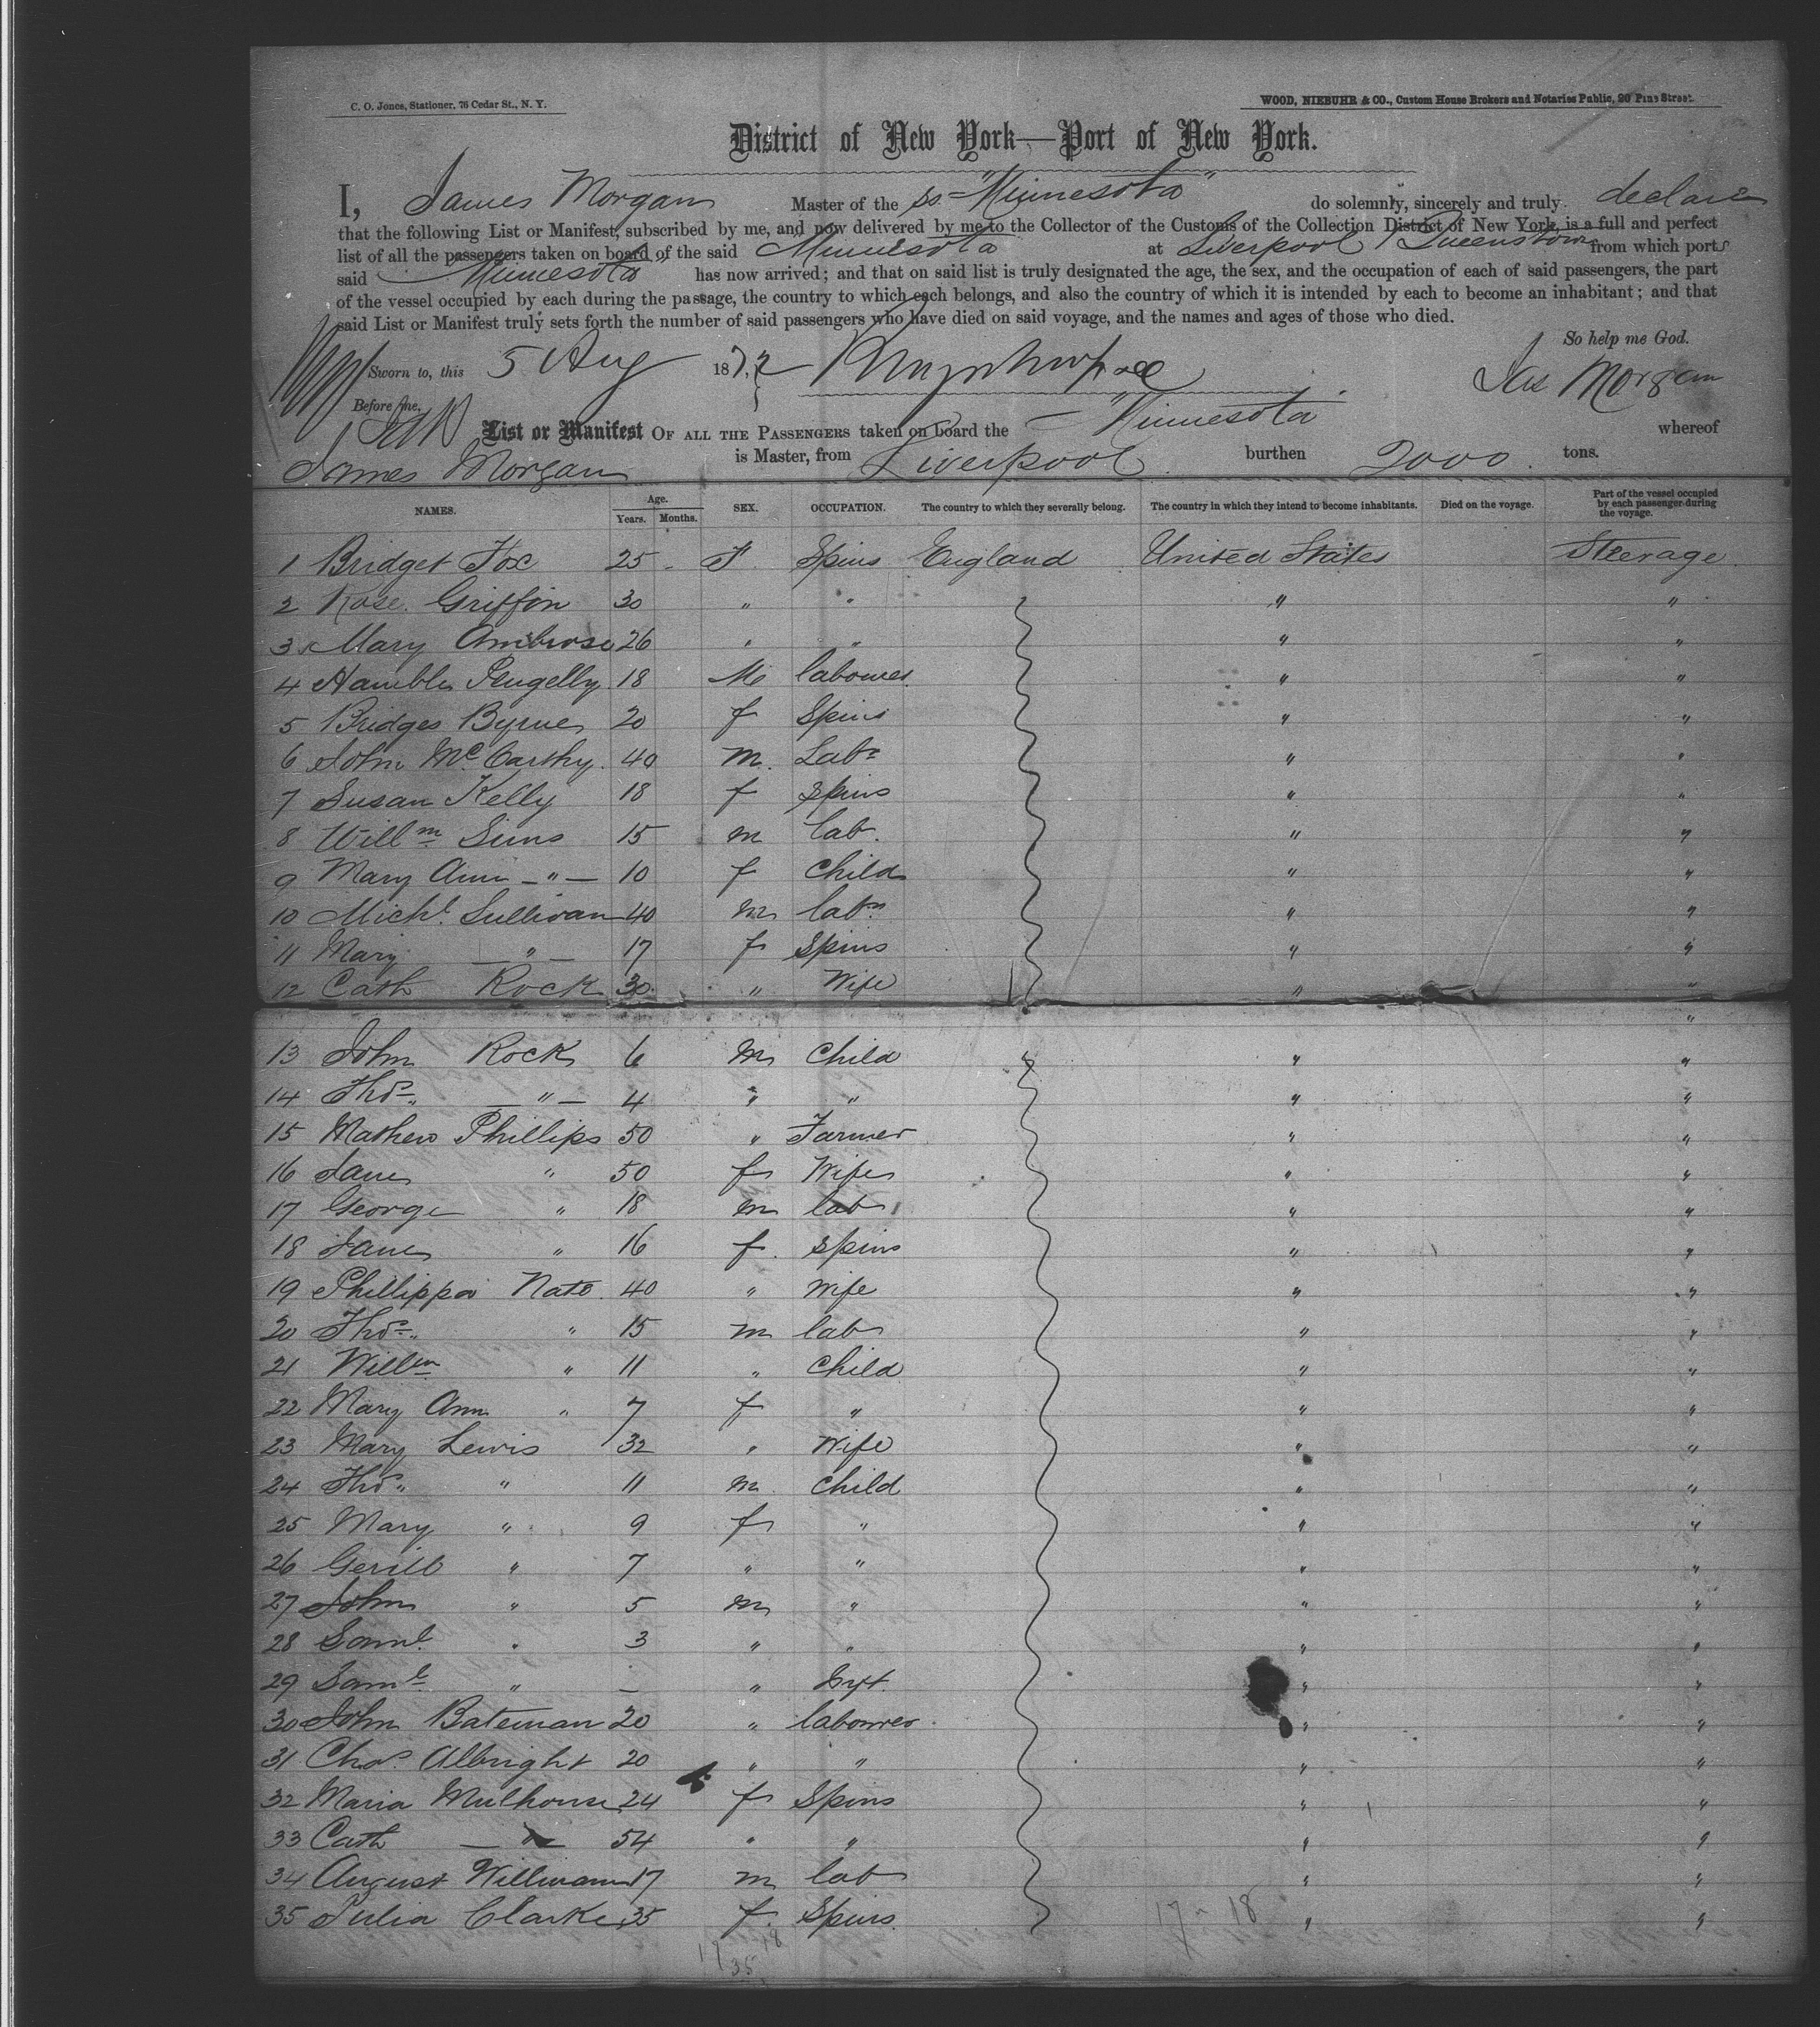 C. O. Jones, Stationer, 76 Cedar St., N. Y.
WOOD, NIEBUHR & CO., Custom House Brokers and Notaries Public, 20 Pine Street.
District of New York—Port of New York.
I, James Morgan Master of the ss "Minnesota" do solemnly, sincerely and truly declare
that the following List or Manifest, subscribed by me, and now delivered by me to the Collector of the Customs of the Collection District of New York, is a full and perfect
list of all the passengers taken on board of the said Minnesota at Liverpool / Queenstown from which ports
said "Minnesota" has now arrived; and that on said list is truly designated the age, the sex, and the occupation of each of said passengers, the part
of the vessel occupied by each during the passage, the country to which each belongs, and also the country of which it is intended by each to become an inhabitant; and that
said List or Manifest truly sets forth the number of said passengers who have died on said voyage, and the names and ages of those who died.
So help me God.
Sworn to, this 5 Aug 1872
Jas Morgan
Before me,
List or Manifest OF ALL THE PASSENGERS taken on board the "Minnesota" whereof
James Morgan is Master, from Liverpool burthen 2000 tons.
NAMES. Age. Years. Months. SEX. OCCUPATION. The country to which they severally belong. The country in which they intend to become inhabitants. Died on the voyage. Part of the vessel occupied by each passenger during the voyage.
1 Bridget Fox 25 - F Spins England United States Steerage
2 Rose Griffin 30 " " " "
3 Mary Ambrose 26 " " " "
4 Hamble Pengelly 18 M labourer " "
5 Bridges Byrne 20 f Spins " "
6 John McCarthy 40 m Labr " "
7 Susan Kelly 18 f Spins " "
8 Willm Sims 15 m lab. " "
9 Mary Ann — " — 10 f Child " "
10 Michl Sullivan 40 m labr " "
11 Mary — " — 17 f Spins " "
12 Cath Rock 30 " Wife " "
"
13 John Rock 6 m Child " "
14 Thos — " — 4 " " " "
15 Mathew Phillips 50 " Farmer " "
16 Jane " 50 f Wife " "
17 George " 18 m lab " "
18 Jane " 16 f. Spins " "
19 Phillippa Nato 40 " Wife " "
20 Thos " 15 m lab " "
21 Willm " 11 " Child " "
22 Mary Ann " 7 f " " "
23 Mary Lewis 32 " Wife " "
24 Thos " 11 m Child " "
25 Mary " 9 f " " "
26 " 7 " " " "
27 John " 5 m " " "
28 Saml " 3 " " " "
29 Saml " — " " "
30 John Bateman 20 " labourer " "
31 Chas Albright 20 " " " "
32 Maria Mulhouse 24 f Spins " "
33 Cath — " — 54 " " " "
34 August Willmann 17 m lab " "
35 Julia Clarke 35 f. Spins. " "
17 - 18
17 18
35